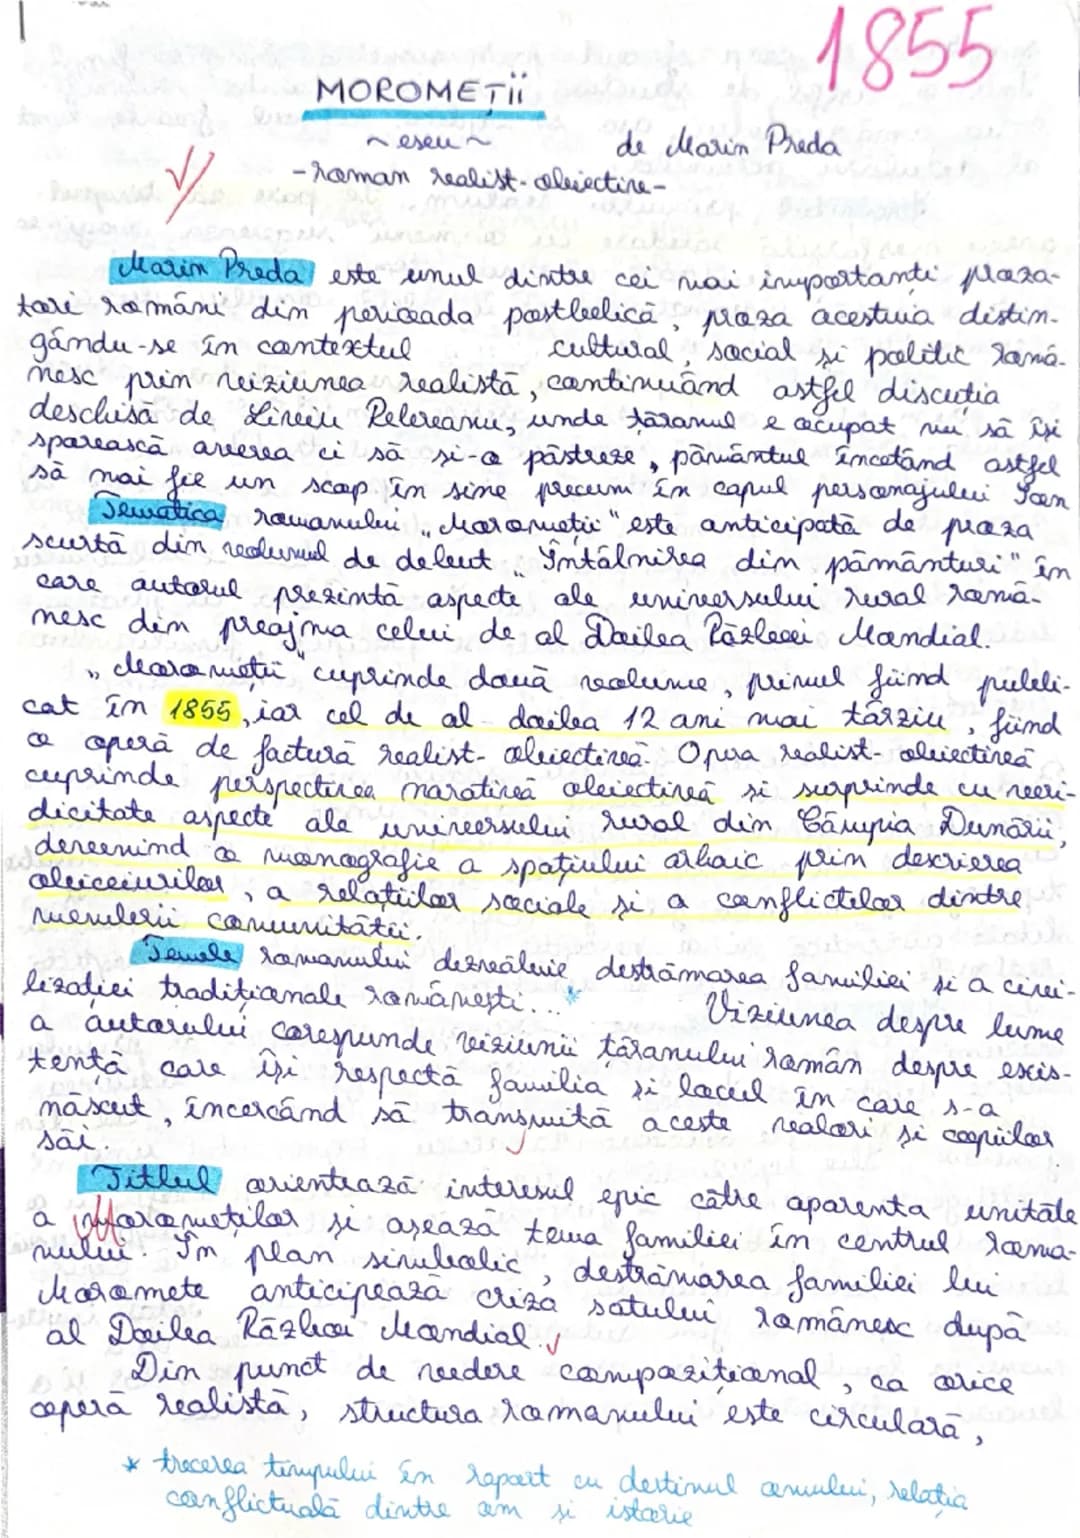 1855
MOROMEȚii
~ eseu ~ de Marin Preda
- roman realist-obiectiv -
Marin Preda este unul dintre cei mai importanți proza-
tori români din perioada postbelică, proza acestuia distin-
gându-se în contextul cultural, social și politic româ-
nesc prin viziunea realistă, continuând astfel discuția
deschisă de Liviu Rebreanu, unde țăranul e ocupat nu să își
sporească averea ci să și-o păstreze, pământul încetând astfel
să mai fie un scop în sine precum în capul personajului Ion
Tematica romanului „Moromeții" este anticipată de proza
scurtă din volumul de debut „Întâlnirea din pământuri" în
care autorul prezintă aspecte ale universului rural româ-
nesc din preajma celui de al Doilea Război Mondial.
„Moromeții" cuprinde două volume, primul fiind publi-
cat în 1855, iar cel de al-doilea 12 ani mai târziu, fiind
o operă de factură realist-obiectivă. Opera realist-obiectivă
cuprinde perspectiva narativă obiectivă și surprinde cu veri-
dicitate aspecte ale universului rural din Câmpia Dunării,
devenind o monografie a spațiului arhaic prin descrierea
obiceiurilor, a relațiilor sociale și a conflictelor dintre
membrii comunității.
Temele romanului dezvăluie destrămarea familiei și a civi-
lizației tradiționale românești... * Viziunea despre lume
a autorului corespunde viziunii țăranului român despre exis-
tență care își respectă familia și locul în care s-a
născut, încercând să transmită aceste valori și copiilor
săi.
Titlul orientează interesul epic către aparenta unitate
a Moromeților și așează tema familiei în centrul roma-
nului. În plan simbolic, destrămarea familiei lui
Moromete anticipează criza satului românesc după
al Doilea Război Mondial.
Din punct de vedere compozițional, ca orice
operă realistă, structura romanului este circulară,
* trecerea timpului în raport cu destinul omului, relația
conflictuală dintre om și istorie